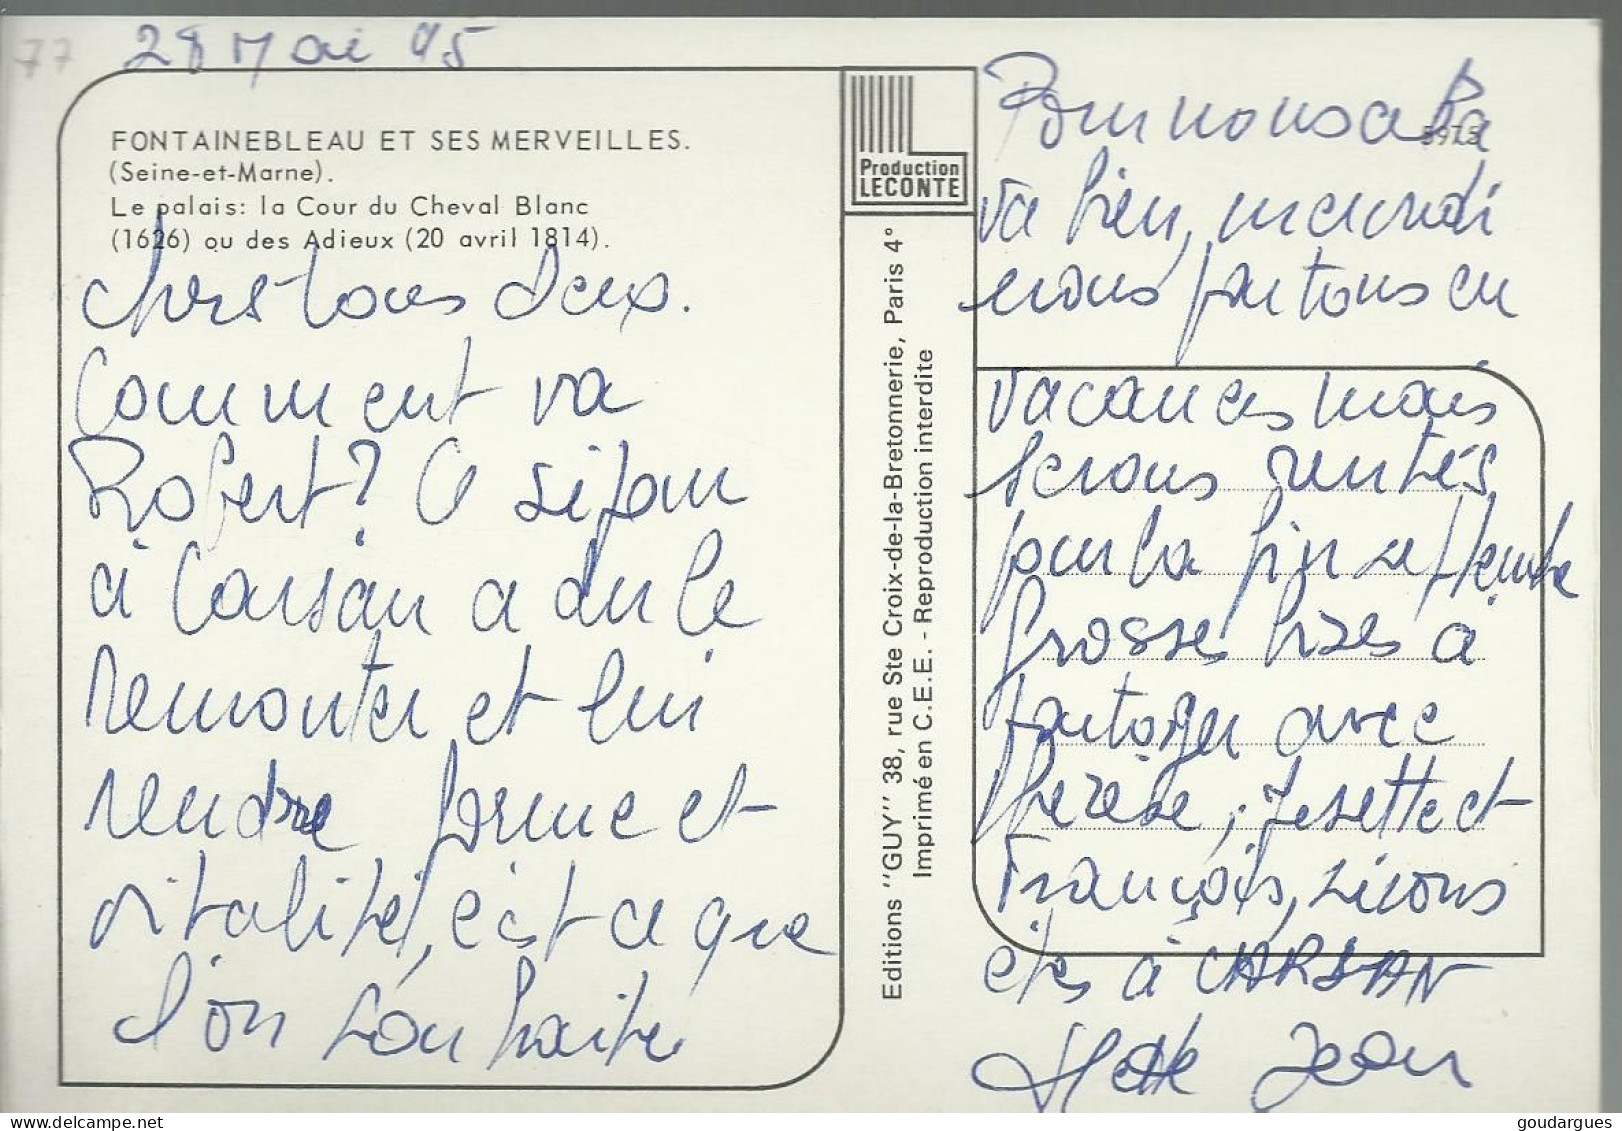 77
28 Mai 95
FONTAINEBLEAU ET SES MERVEILLES.
(Seine-et-Marne).
Le palais: la Cour du Cheval Blanc
(1626) ou des Adieux (20 avril 1814).
Chers tous deux.
Comment va
Robert? Ce séjour
à Carsan a du le
remonter et lui
rendre forme et
vitalité, c'est ce que
l'on souhaite
Production
LECONTE
Editions "GUY" 38, rue Ste Croix-de-la-Bretonnerie, Paris 4°
Imprimé en C.E.E. - Reproduction interdite
Pour nous cela
va bien, mercredi
nous partons en
vacances mais
serons rentrés
pour la fin septembre
Grosses bises à
partager avec
Thérèse, Josette et
François, si vous
êtes à CARSAN
Jean
goudargues